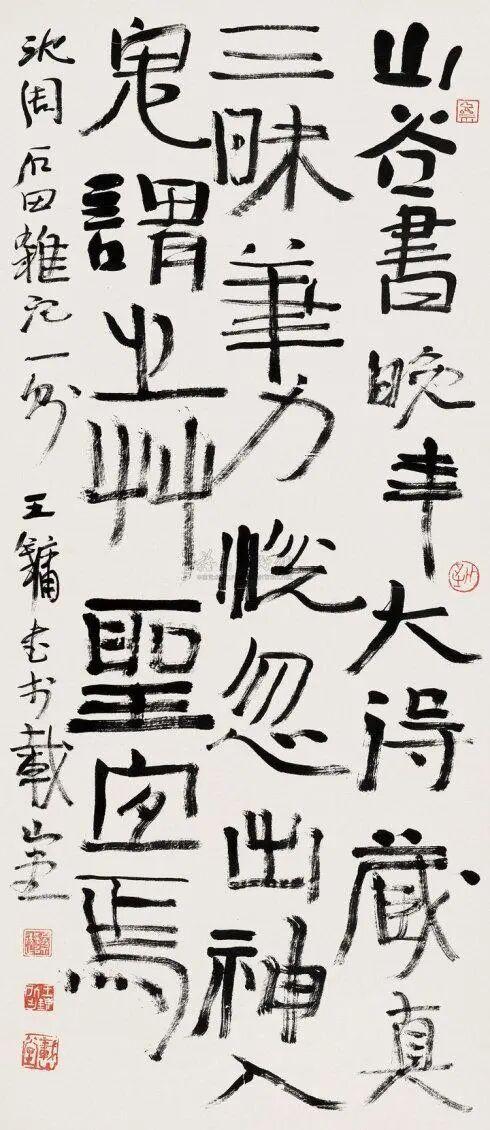 山谷書晚年大得藏真
三昧筆力恍忽出神入
鬼謂之艸聖宜焉
沈周石田雜記一則 王鏞書於載山